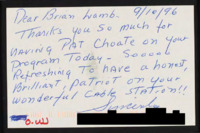 Dear Brian Lamb. 9/10/96
Thanks you so much for
having PAT Choate on your
program Today - Sooooo
Refreshing To have a honest,
Brilliant, patriot on your
wonderful Cable Station!!
Sincerely